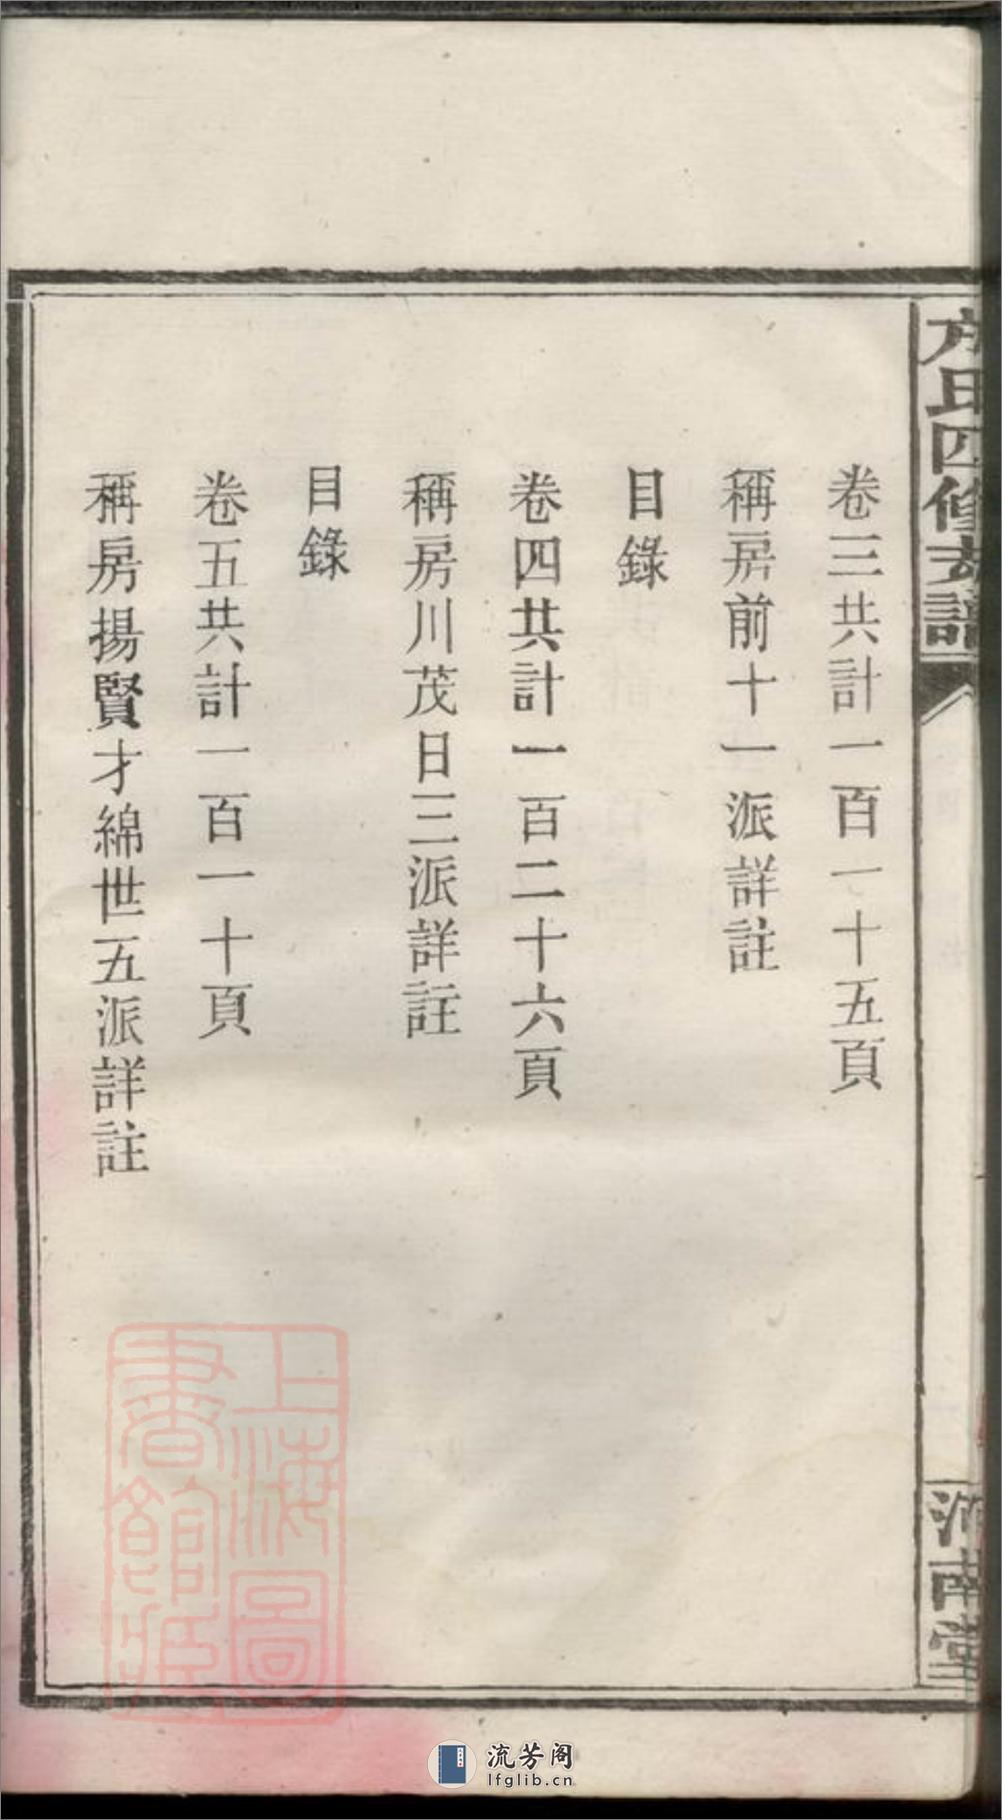 方氏四修支譜
河南堂
卷三共計一百一十五頁
稱房前十一派詳註
目錄
卷四共計一百二十六頁
稱房川茂日三派詳註
目錄
卷五共計一百一十頁
稱房揚賢才綿世五派詳註
上海圖書館藏
流芳阁
lfglib.cn